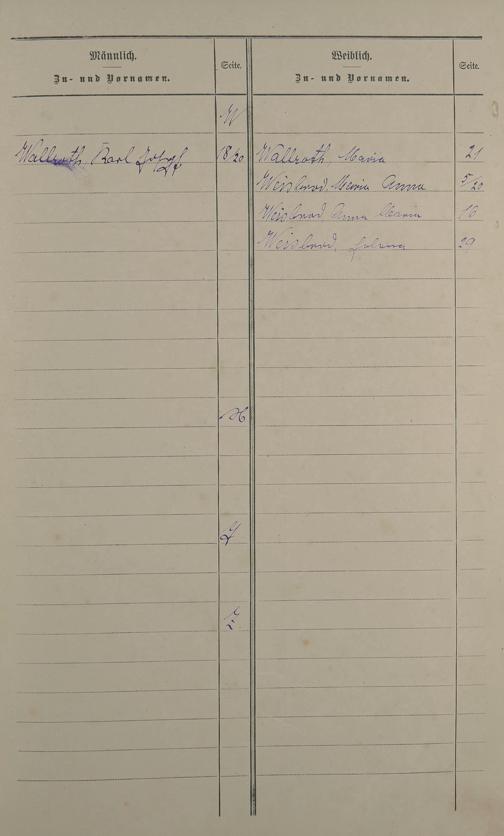 Männlich.
Zu- und Vornamen.
Seite.
Weiblich.
Zu- und Vornamen.
Seite.
W
Wallroth, Karl Josef 18/20
Wallroth Maria 21
Weisbrod, Maria Anna 5/20
Weisbrod Anna Maria 16
Weisbrod, 29
X
Y
Z